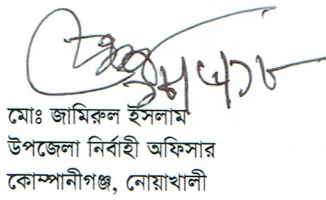 মোঃ জামিরুল ইসলাম
উপজেলা নির্বাহী অফিসার
কোম্পানীগঞ্জ, নোয়াখালী